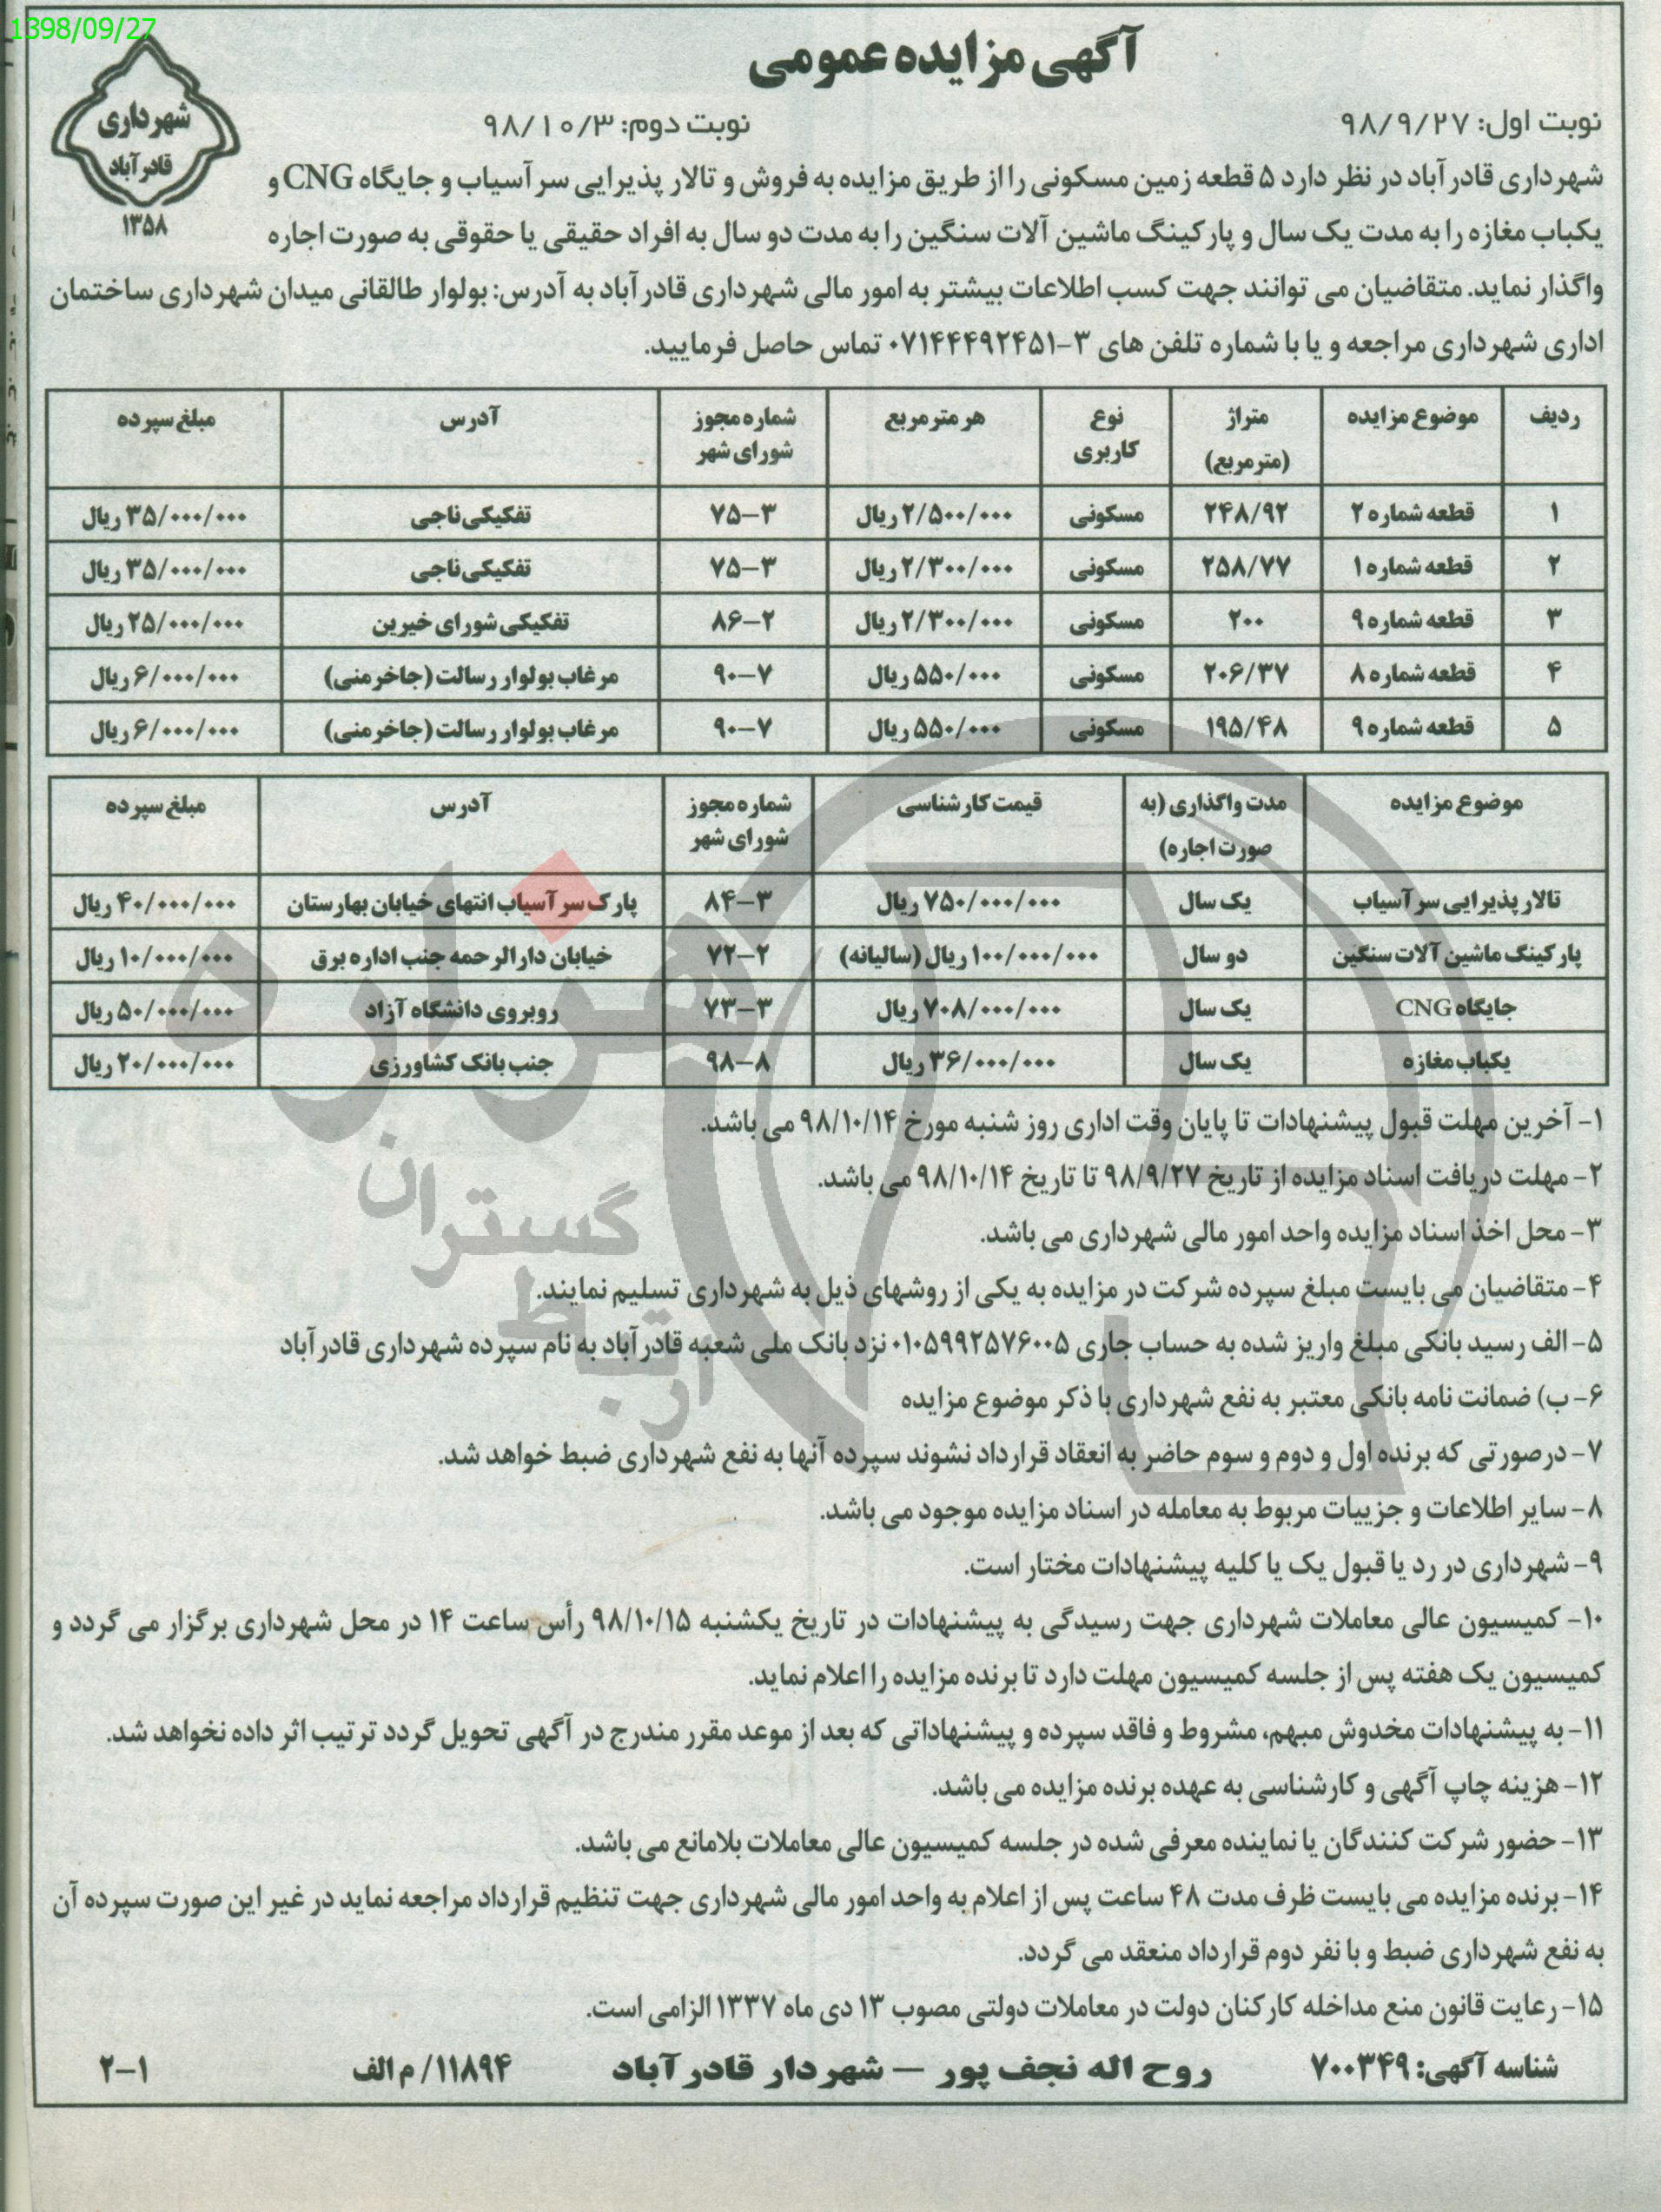 1398/09/27
آگهی مزایده عمومی
شهرداری
قادرآباد
۱۳۵۸
نوبت اول: ۹۸/۹/۲۷ نوبت دوم: ۹۸/۱۰/۳
شهرداری قادرآباد در نظر دارد ۵ قطعه زمین مسکونی را از طریق مزایده به فروش و تالار پذیرایی سرآسیاب و جایگاه CNG و
یکباب مغازه را به مدت یک سال و پارکینگ ماشین آلات سنگین را به مدت دو سال به افراد حقیقی یا حقوقی به صورت اجاره
واگذار نماید. متقاضیان می توانند جهت کسب اطلاعات بیشتر به امور مالی شهرداری قادرآباد به آدرس: بولوار طالقانی میدان شهرداری ساختمان
اداری شهرداری مراجعه و یا با شماره تلفن های ۳-۰۷۱۴۴۴۹۲۴۵۱ تماس حاصل فرمایید.
ردیف موضوع مزایده متراژ (مترمربع) نوع کاربری هر مترمربع شماره مجوز شورای شهر آدرس مبلغ سپرده
۱ قطعه شماره ۲ ۲۴۸/۹۲ مسکونی ۲/۵۰۰/۰۰۰ ریال ۷۵-۳ تفکیکی ناجی ۳۵/۰۰۰/۰۰۰ ریال
۲ قطعه شماره ۱ ۲۵۸/۷۷ مسکونی ۲/۳۰۰/۰۰۰ ریال ۷۵-۳ تفکیکی ناجی ۳۵/۰۰۰/۰۰۰ ریال
۳ قطعه شماره ۹ ۲۰۰ مسکونی ۲/۳۰۰/۰۰۰ ریال ۸۶-۲ تفکیکی شورای خیرین ۲۵/۰۰۰/۰۰۰ ریال
۴ قطعه شماره ۸ ۲۰۶/۳۷ مسکونی ۵۵۰/۰۰۰ ریال ۹۰-۷ مرغاب بولوار رسالت (جاخرمنی) ۶/۰۰۰/۰۰۰ ریال
۵ قطعه شماره ۹ ۱۹۵/۴۸ مسکونی ۵۵۰/۰۰۰ ریال ۹۰-۷ مرغاب بولوار رسالت (جاخرمنی) ۶/۰۰۰/۰۰۰ ریال
موضوع مزایده مدت واگذاری (به صورت اجاره) قیمت کارشناسی شماره مجوز شورای شهر آدرس مبلغ سپرده
تالار پذیرایی سرآسیاب یک سال ۷۵۰/۰۰۰/۰۰۰ ریال ۸۴-۳ پارک سرآسیاب انتهای خیابان بهارستان ۴۰/۰۰۰/۰۰۰ ریال
پارکینگ ماشین آلات سنگین دو سال ۱۰۰/۰۰۰/۰۰۰ ریال (سالیانه) ۷۲-۲ خیابان دارالرحمه جنب اداره برق ۱۰/۰۰۰/۰۰۰ ریال
جایگاه CNG یک سال ۷۰۸/۰۰۰/۰۰۰ ریال ۷۳-۳ روبروی دانشگاه آزاد ۵۰/۰۰۰/۰۰۰ ریال
یکباب مغازه یک سال ۳۶/۰۰۰/۰۰۰ ریال ۹۸-۸ جنب بانک کشاورزی ۲۰/۰۰۰/۰۰۰ ریال
هزاره
گستران
ارتباط
۱- آخرین مهلت قبول پیشنهادات تا پایان وقت اداری روز شنبه مورخ ۹۸/۱۰/۱۴ می باشد.
۲- مهلت دریافت اسناد مزایده از تاریخ ۹۸/۹/۲۷ تا تاریخ ۹۸/۱۰/۱۴ می باشد.
۳- محل اخذ اسناد مزایده واحد امور مالی شهرداری می باشد.
۴- متقاضیان می بایست مبلغ سپرده شرکت در مزایده به یکی از روشهای ذیل به شهرداری تسلیم نمایند.
۵- الف رسید بانکی مبلغ واریز شده به حساب جاری ۰۱۰۵۹۹۲۵۷۶۰۰۵ نزد بانک ملی شعبه قادرآباد به نام سپرده شهرداری قادرآباد
۶- ب) ضمانت نامه بانکی معتبر به نفع شهرداری با ذکر موضوع مزایده
۷- درصورتی که برنده اول و دوم و سوم حاضر به انعقاد قرارداد نشوند سپرده آنها به نفع شهرداری ضبط خواهد شد.
۸- سایر اطلاعات و جزییات مربوط به معامله در اسناد مزایده موجود می باشد.
۹- شهرداری در رد یا قبول یک یا کلیه پیشنهادات مختار است.
۱۰- کمیسیون عالی معاملات شهرداری جهت رسیدگی به پیشنهادات در تاریخ یکشنبه ۹۸/۱۰/۱۵ رأس ساعت ۱۴ در محل شهرداری برگزار می گردد و
کمیسیون یک هفته پس از جلسه کمیسیون مهلت دارد تا برنده مزایده را اعلام نماید.
۱۱- به پیشنهادات مخدوش مبهم، مشروط و فاقد سپرده و پیشنهاداتی که بعد از موعد مقرر مندرج در آگهی تحویل گردد ترتیب اثر داده نخواهد شد.
۱۲- هزینه چاپ آگهی و کارشناسی به عهده برنده مزایده می باشد.
۱۳- حضور شرکت کنندگان یا نماینده معرفی شده در جلسه کمیسیون عالی معاملات بلامانع می باشد.
۱۴- برنده مزایده می بایست ظرف مدت ۴۸ ساعت پس از اعلام به واحد امور مالی شهرداری جهت تنظیم قرارداد مراجعه نماید در غیر این صورت سپرده آن
به نفع شهرداری ضبط و با نفر دوم قرارداد منعقد می گردد.
۱۵- رعایت قانون منع مداخله کارکنان دولت در معاملات دولتی مصوب ۱۳ دی ماه ۱۳۳۷ الزامی است.
شناسه آگهی: ۷۰۰۳۴۹ روح اله نجف پور – شهردار قادرآباد ۱۱۸۹۴/ م الف ۲-۱